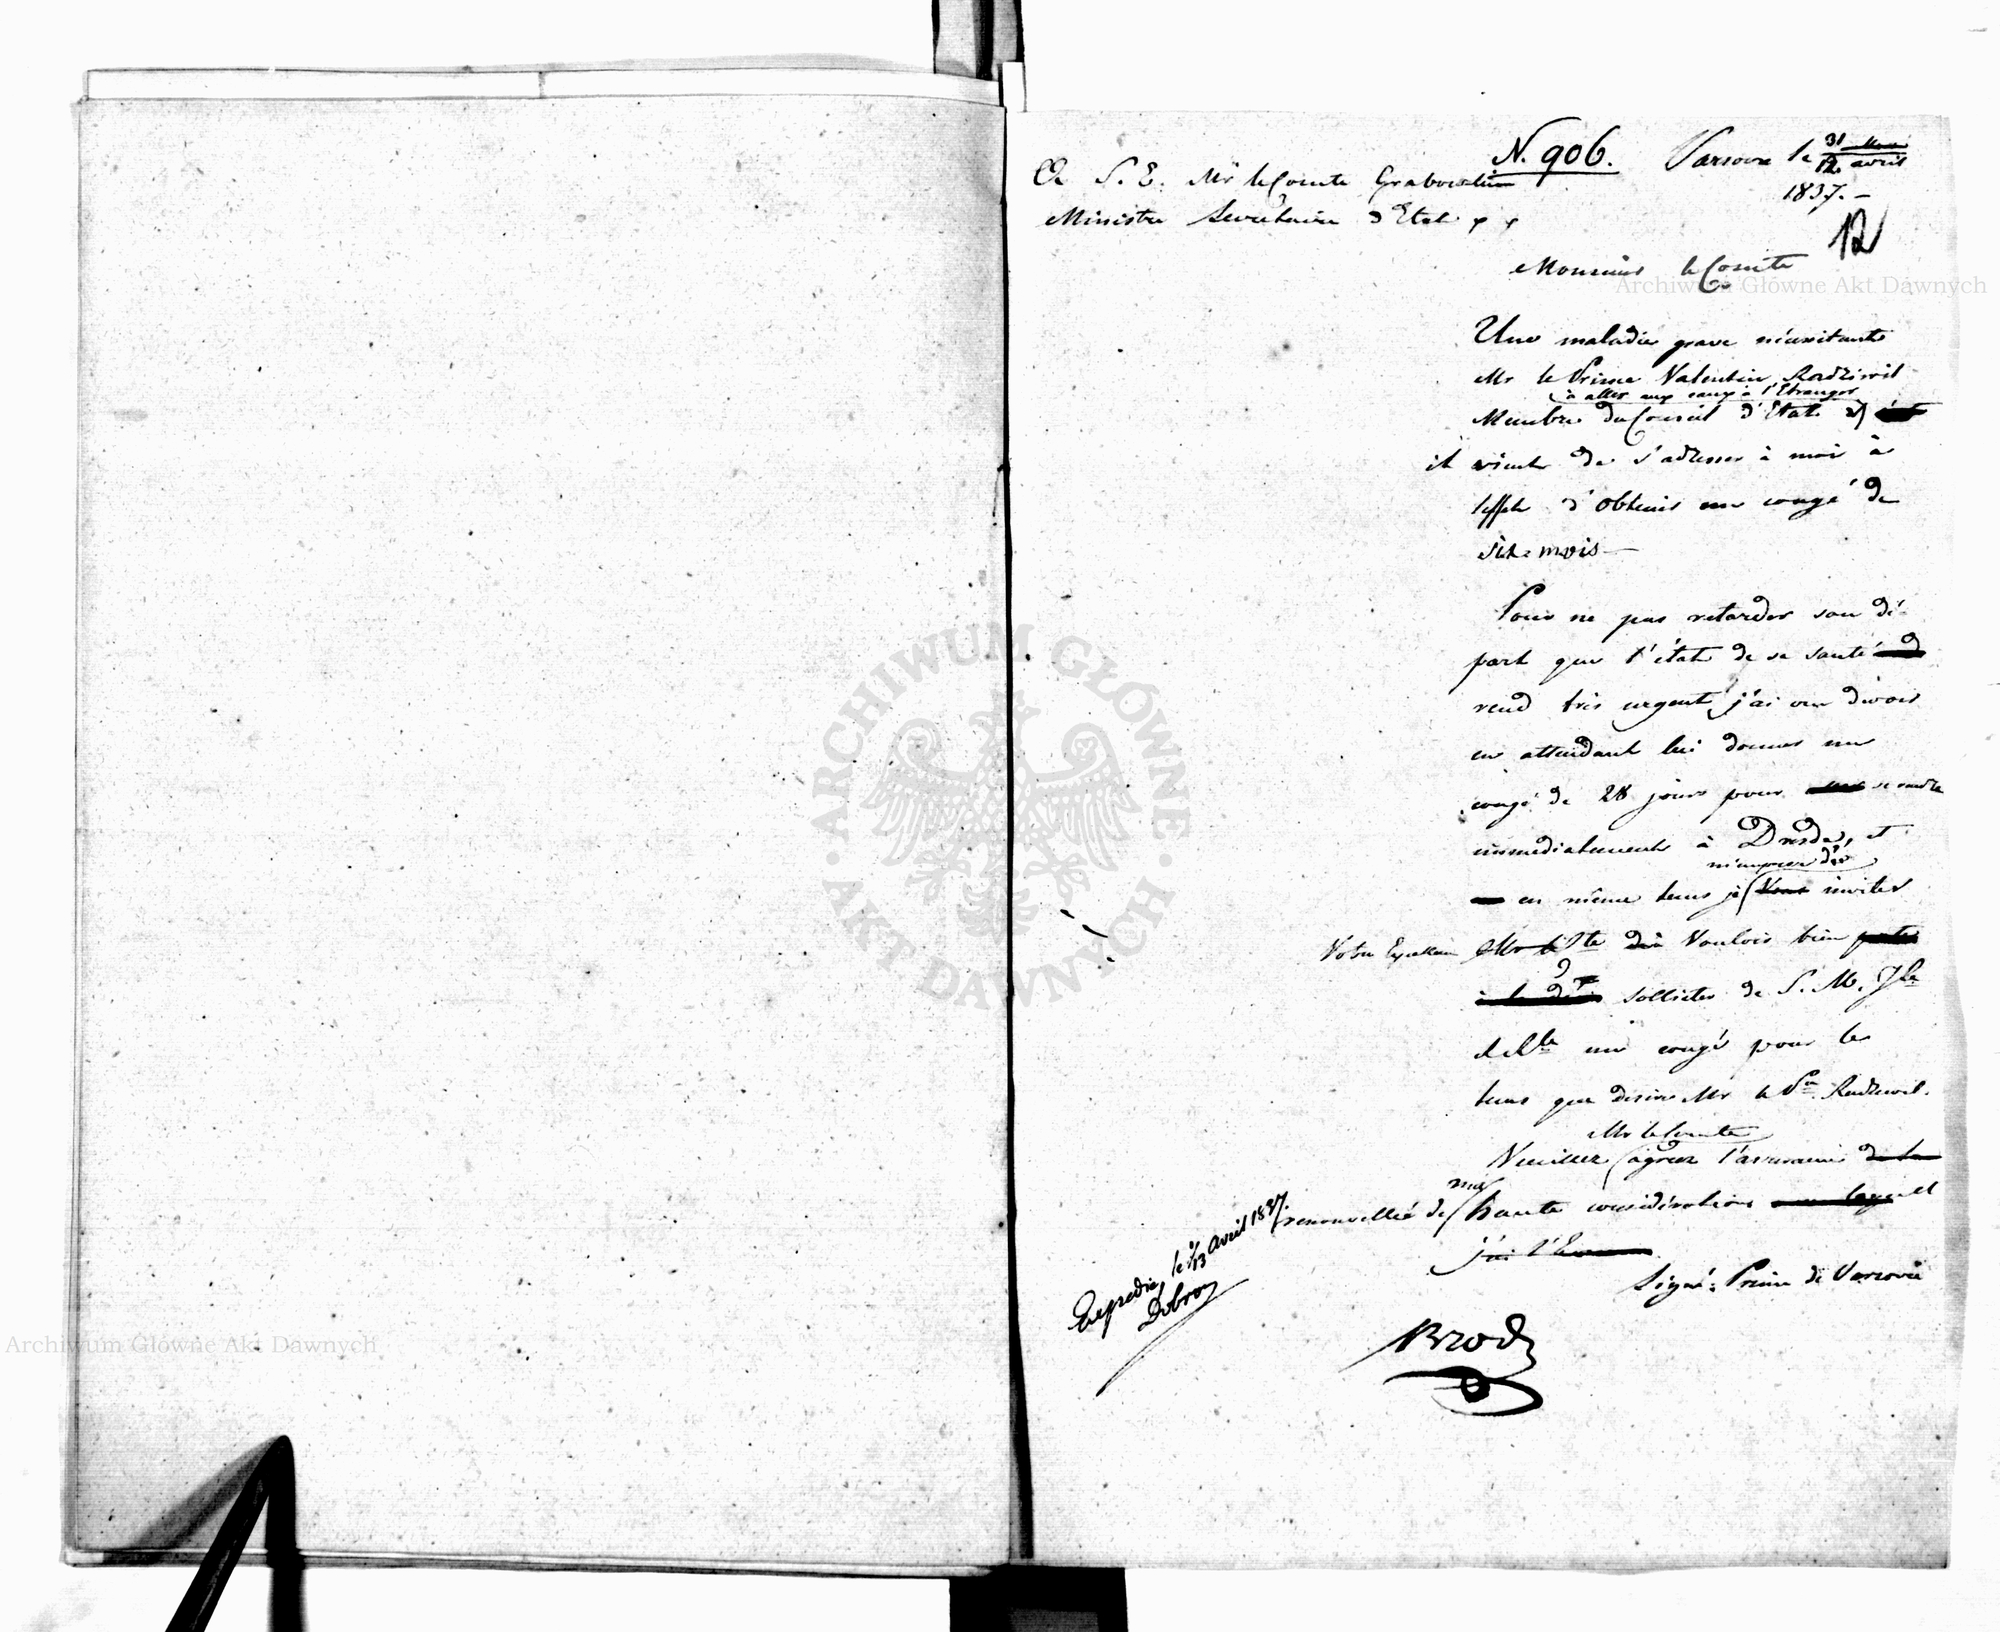 N. 906. Varsovie le 31 Mars / 12 avril
1837. -
A S. E. Mr le Comte Grabowski
Ministre Secrétaire d'Etat
12
Monsieur le Comte
Une maladie grave nécessitant
Mr le Prince Valentin Radziwil
à aller aux eaux à l'Etranger
Membre du Conseil d'Etat
il vient de s'adresser à moi à
l'effet d'obtenir un congé de
six mois —
Pour ne pas retarder son dé-
part que l'état de sa santé
rend très urgent, j'ai cru devoir
en attendant lui donner un
congé de 28 jours pour se rendre
immediatement à Dresde, et
m'empresse d'
en même tems je vous inviter
Votre Excellence Mr le Cte à vouloir bien porter
solliciter de S. M. Jle
et Rle un congé pour le
tems que desire Mr le Pce Radziwil.
Mr le Comte
Veuillez agréer l'assurance de la
renouvellée de ma haute considération
j'ai l'
Signé: Prince de Varsovie
Expedié le 1/13 avril 1837.
Dobro
Brod
ARCHIWUM GŁÓWNE AKT DAWNYCH
Archiwum Główne Akt Dawnych
Archiwum Główne Akt Dawnych